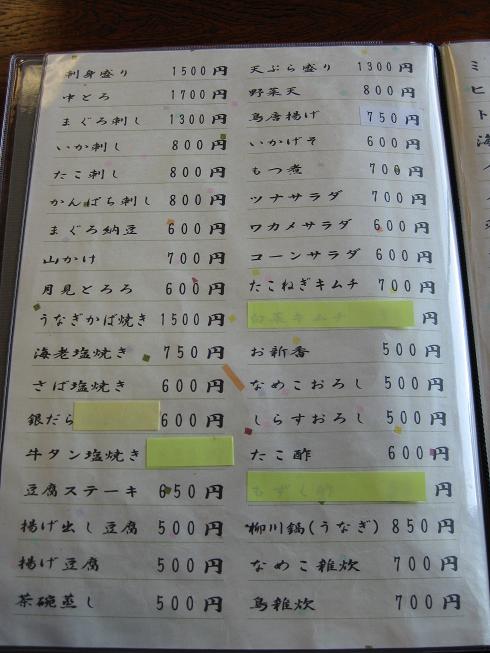 刺身盛り 1500円
中とろ 1700円
まぐろ刺し 1300円
いか刺し 800円
たこ刺し 800円
かんぱち刺し 800円
まぐろ納豆 600円
山かけ 700円
月見とろろ 600円
うなぎかば焼き 1500円
海老塩焼き 750円
さば塩焼き 600円
銀だら 600円
牛タン塩焼き
豆腐ステーキ 650円
揚げ出し豆腐 500円
揚げ豆腐 500円
茶碗蒸し 500円
天ぷら盛り 1300円
野菜天 800円
鳥唐揚げ 750円
いかげそ 600円
もつ煮 700円
ツナサラダ 700円
ワカメサラダ 600円
コーンサラダ 600円
たこねぎキムチ 700円
白菜キムチ 円
お新香 500円
なめこおろし 500円
しらすおろし 500円
たこ酢 600円
もずく酢 円
柳川鍋(うなぎ) 850円
なめこ雑炊 700円
鳥雑炊 700円
ミ
ヒ
ト
海